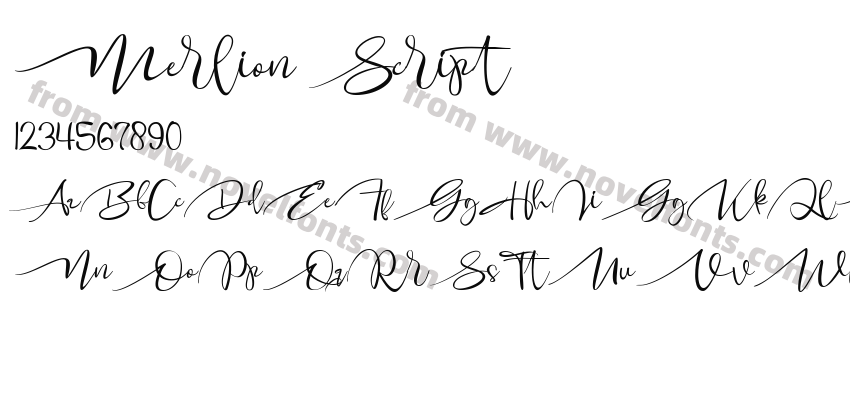 Merlion Script
1234567890
Aa Bb Cc Dd Ee Ff Gg Hh Ii Gg Kk Ll
Nn Oo Pp Qq Rr Ss Tt Uu Vv W
from www.novelfonts.com
from www.novelfonts.com